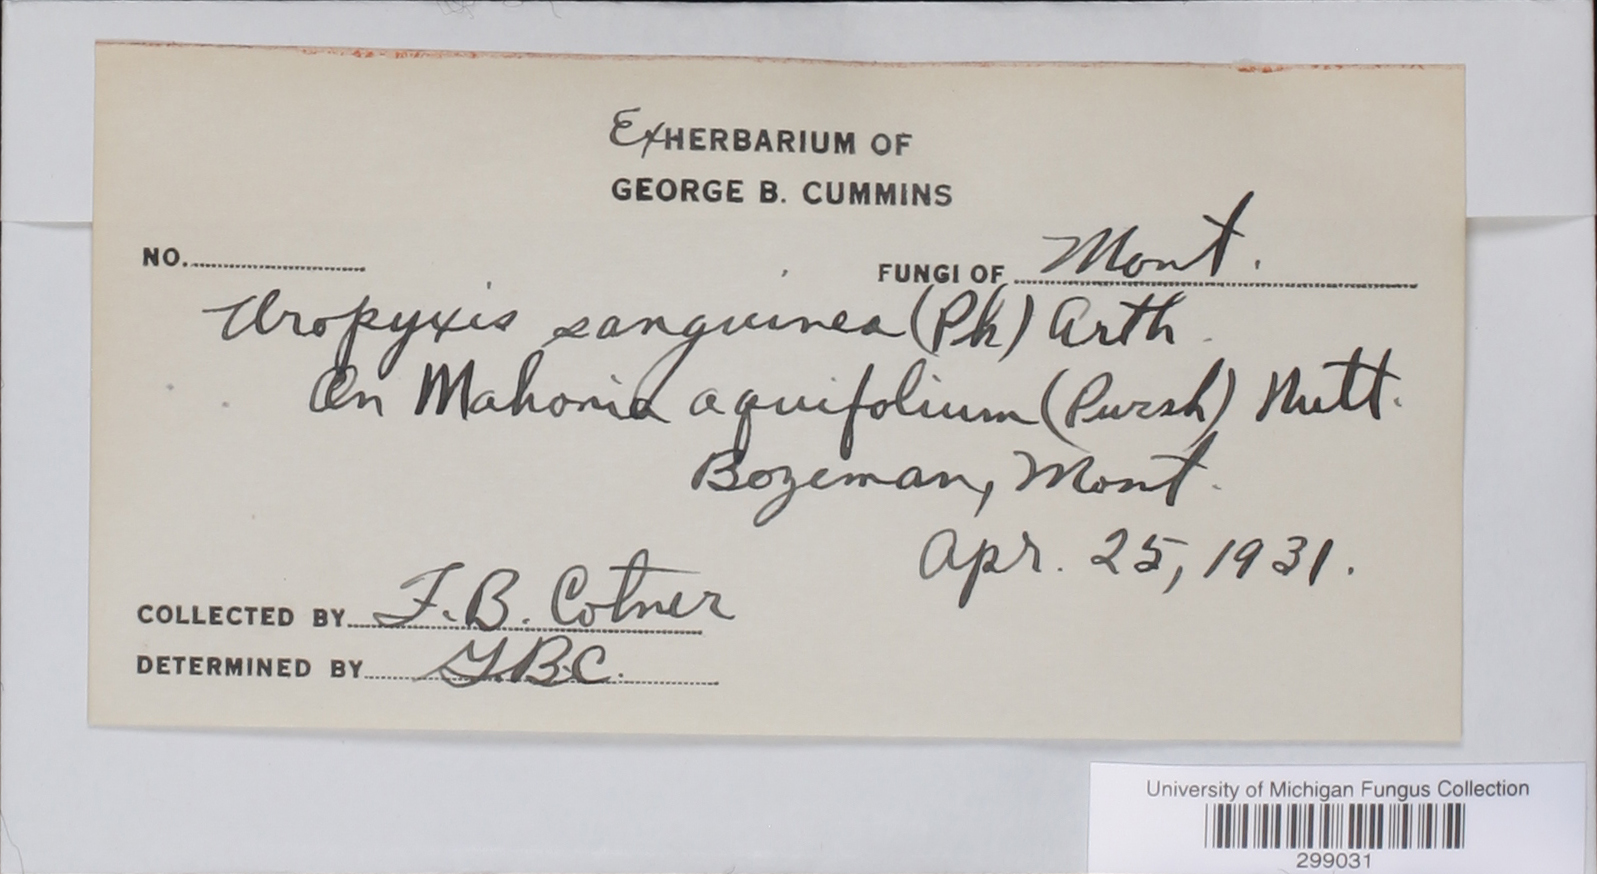 Ex HERBARIUM OF
GEORGE B. CUMMINS
NO.
FUNGI OF Mont.
Uropyxis sanguinea (Pk) Arth.
On Mahonia aquifolium (Pursh) Nutt.
Bozeman, Mont.
Apr. 25, 1931.
COLLECTED BY F. B. Cotner
DETERMINED BY G.B.C.
University of Michigan Fungus Collection
299031